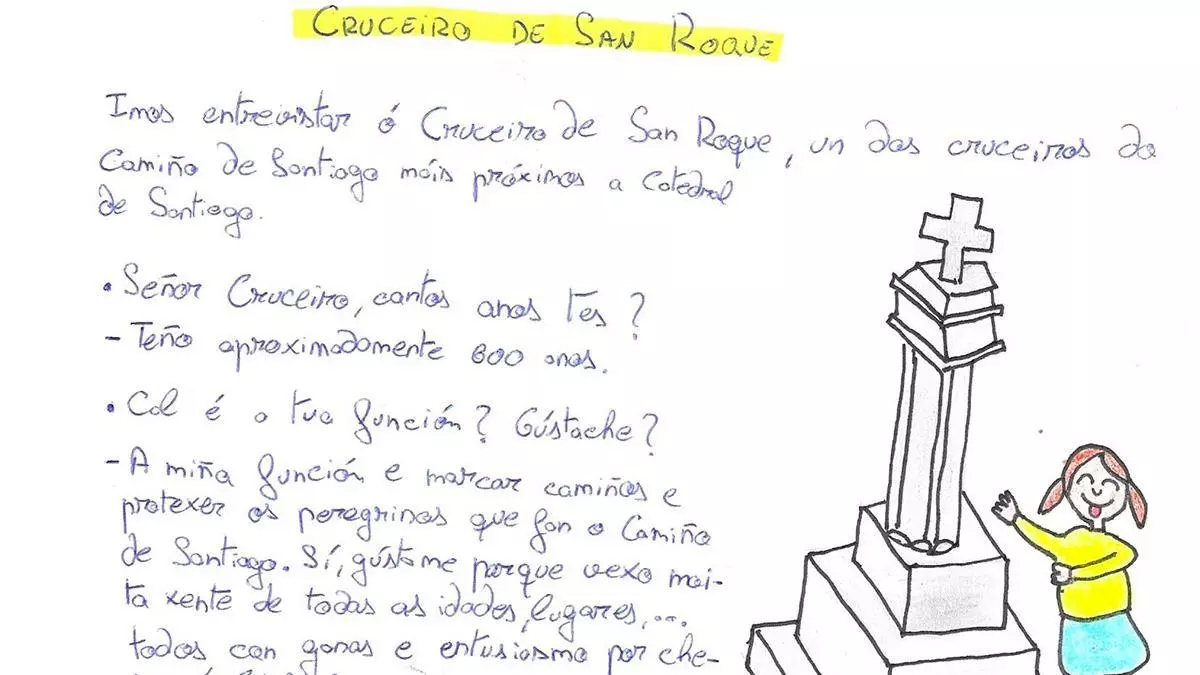 CRUCEIRO DE SAN ROQUE
Imos entrevistar ó Cruceiro de San Roque, un dos cruceiros do
Camiño de Santiago máis próximos a Catedral
de Santiago.
• Señor Cruceiro, cantos anos tes?
- Teño aproximadamente 600 anos.
• Cal é a tua función? Gústache?
- A miña función e marcar camiños e
protexer os peregrinos que fan o Camiño
de Santiago. Sí, gústame porque vexo moi-
ta xente de todas as idades, lugares,...
todos con ganas e entusiasmo por che-